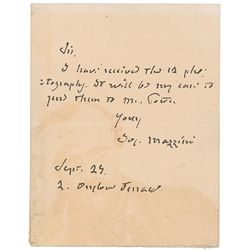 Sir.
I have received the 12 pho-
tographs. It will be my care to
send them to Mr.
Yours
Jos. Mazzini
Sept. 24.
2. Onslow Terrace